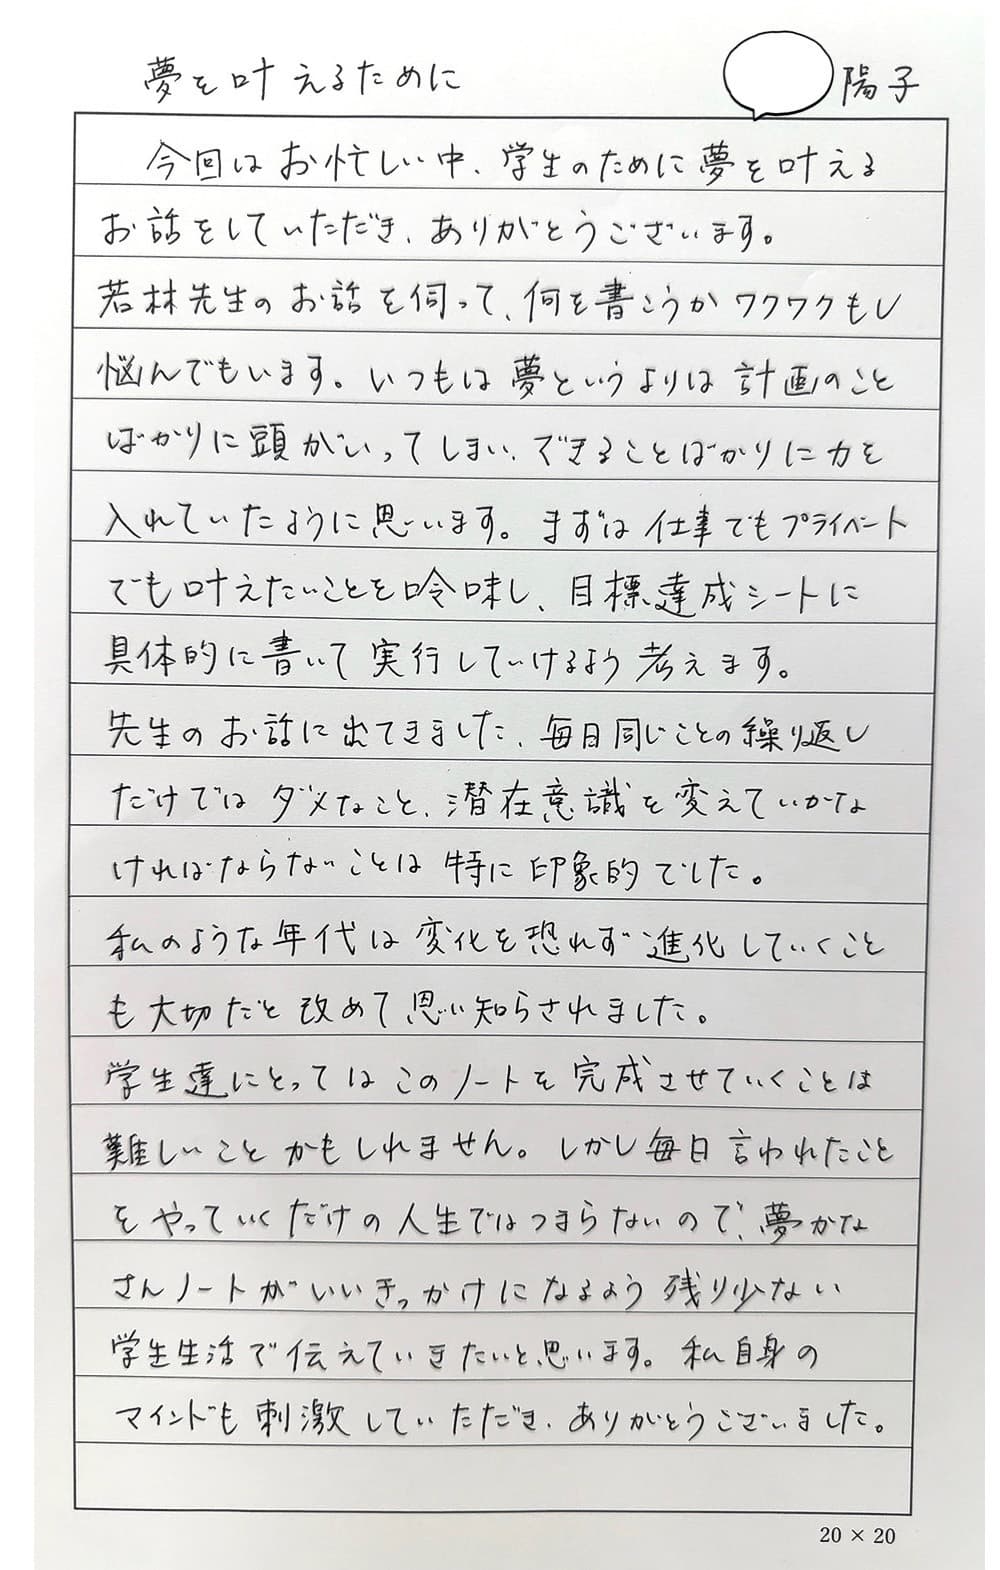 夢を叶えるために
陽子
今回はお忙しい中、学生のために夢を叶える
お話をしていただき、ありがとうございます。
若林先生のお話を伺って、何を書こうかワクワクもし
悩んでもいます。いつもは夢というよりは計画のこと
ばかりに頭がいってしまい、できることばかりに力を
入れていたように思います。まずは仕事でもプライベート
でも叶えたいことを吟味し、目標達成シートに
具体的に書いて実行していけるよう考えます。
先生のお話に出てきました、毎日同じことの繰り返し
だけではダメなこと、潜在意識を変えていかな
ければならないことは特に印象的でした。
私のような年代は変化を恐れず進化していくこと
も大切だと改めて思い知らされました。
学生達にとってはこのノートを完成させていくことは
難しいことかもしれません。しかし毎日言われたこと
をやっていくだけの人生ではつまらないので、夢かな
さんノートがいいきっかけになるよう残り少ない
学生生活で伝えていきたいと思います。私自身の
マインドも刺激していただき、ありがとうございました。
20 × 20